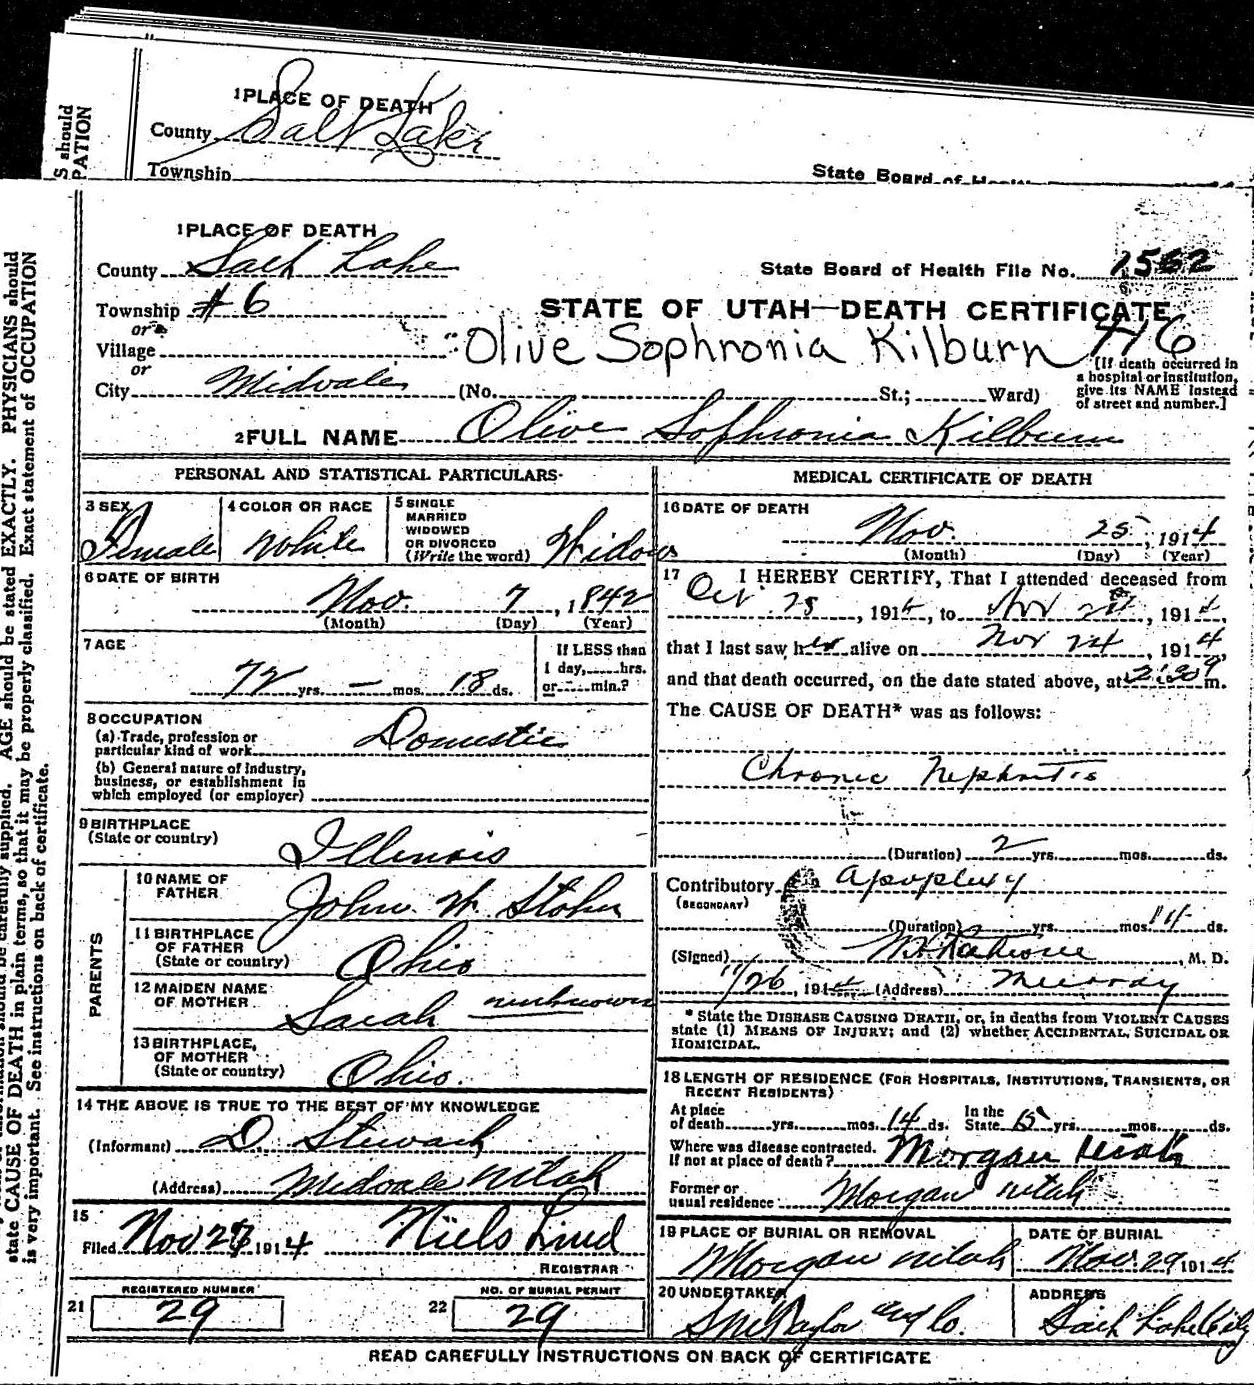 1 PLACE OF DEATH
County Salt Lake
Township
State Board of Health
S should
PATION
1 PLACE OF DEATH
County Salt Lake
State Board of Health File No. 1562
Township #6
STATE OF UTAH—DEATH CERTIFICATE
or
Village
Olive Sophronia Kilburn #16
or
City Midvale (No. St.; Ward)
[If death occurred in
a hospital or institution,
give its NAME instead
of street and number.]
2 FULL NAME Olive Sophronia Kilburn
PERSONAL AND STATISTICAL PARTICULARS
3 SEX
Female
4 COLOR OR RACE
White
5 SINGLE
MARRIED
WIDOWED
OR DIVORCED
(Write the word) Widow
6 DATE OF BIRTH
Nov. 7, 1842
(Month) (Day) (Year)
7 AGE
72 yrs. — mos. 18 ds.
If LESS than
1 day, hrs.
or min.?
8 OCCUPATION
(a) Trade, profession or
particular kind of work Domestic
(b) General nature of industry,
business, or establishment in
which employed (or employer)
9 BIRTHPLACE
(State or country) Illinois
PARENTS
10 NAME OF
FATHER John W Stoker
11 BIRTHPLACE
OF FATHER
(State or country) Ohio
12 MAIDEN NAME
OF MOTHER Sarah unknown
13 BIRTHPLACE,
OF MOTHER
(State or country) Ohio.
14 THE ABOVE IS TRUE TO THE BEST OF MY KNOWLEDGE
(Informant) D. Steward
(Address) Midvale Utah
15
Filed Nov 27 1914 Niels Lind
REGISTRAR
REGISTERED NUMBER
21 29
NO. OF BURIAL PERMIT
22 29
MEDICAL CERTIFICATE OF DEATH
16 DATE OF DEATH
Nov. 25, 1914
(Month) (Day) (Year)
17 I HEREBY CERTIFY, That I attended deceased from
Oct 25, 1914, to Nov 24, 1914,
that I last saw her alive on Nov 24, 1914,
and that death occurred, on the date stated above, at 2:30 m.
The CAUSE OF DEATH* was as follows:
Chronic Nephritis
(Duration) 2 yrs. mos. ds.
Contributory Apoplexy
(SECONDARY)
(Duration) yrs. mos. 14 ds.
(Signed) M. D.
11/26, 1914 (Address) Murray
* State the DISEASE CAUSING DEATH, or, in deaths from VIOLENT CAUSES
state (1) MEANS OF INJURY; and (2) whether ACCIDENTAL, SUICIDAL OR
HOMICIDAL.
18 LENGTH OF RESIDENCE (FOR HOSPITALS, INSTITUTIONS, TRANSIENTS, OR
RECENT RESIDENTS)
At place
of death yrs. mos. 14 ds.
In the
State 15 yrs. mos. ds.
Where was disease contracted.
If not at place of death? Morgan Utah
Former or
usual residence Morgan Utah
19 PLACE OF BURIAL OR REMOVAL
Morgan Utah
DATE OF BURIAL
Nov. 29, 1914
20 UNDERTAKER
S M Taylor and Co.
ADDRESS
Salt Lake City
READ CAREFULLY INSTRUCTIONS ON BACK OF CERTIFICATE
AGE should be stated EXACTLY. PHYSICIANS should
state CAUSE OF DEATH in plain terms, so that it may be properly classified. Exact statement of OCCUPATION
is very important. See instructions on back of certificate.